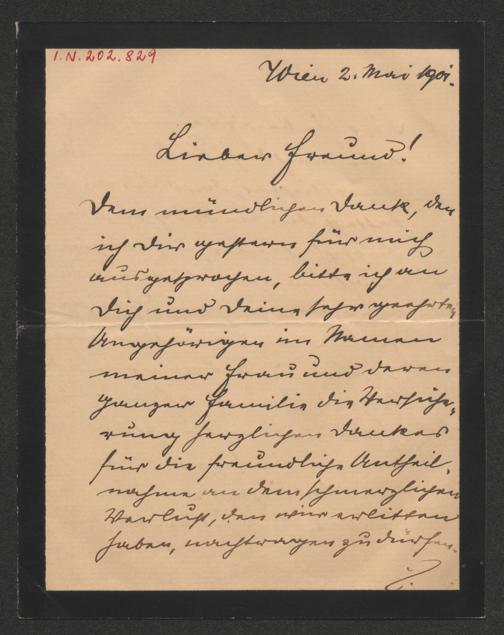 I.N. 202.829
Wien 2. Mai 1901.
Lieber Freund!
Dem mündlichen Dank, den
ich Dir gestern für mich
ausgesprochen, bitte ich an
Dich und Deine sehr geehrten
Angehörigen im Namen
meiner Frau und deren
ganzer Familie die Versiche-
rung herzlichen Dankes
für die freundliche Antheil-
nahme an dem schmerzlichen
Verlust, den wir erlitten
haben, nachtragen zu dürfen.